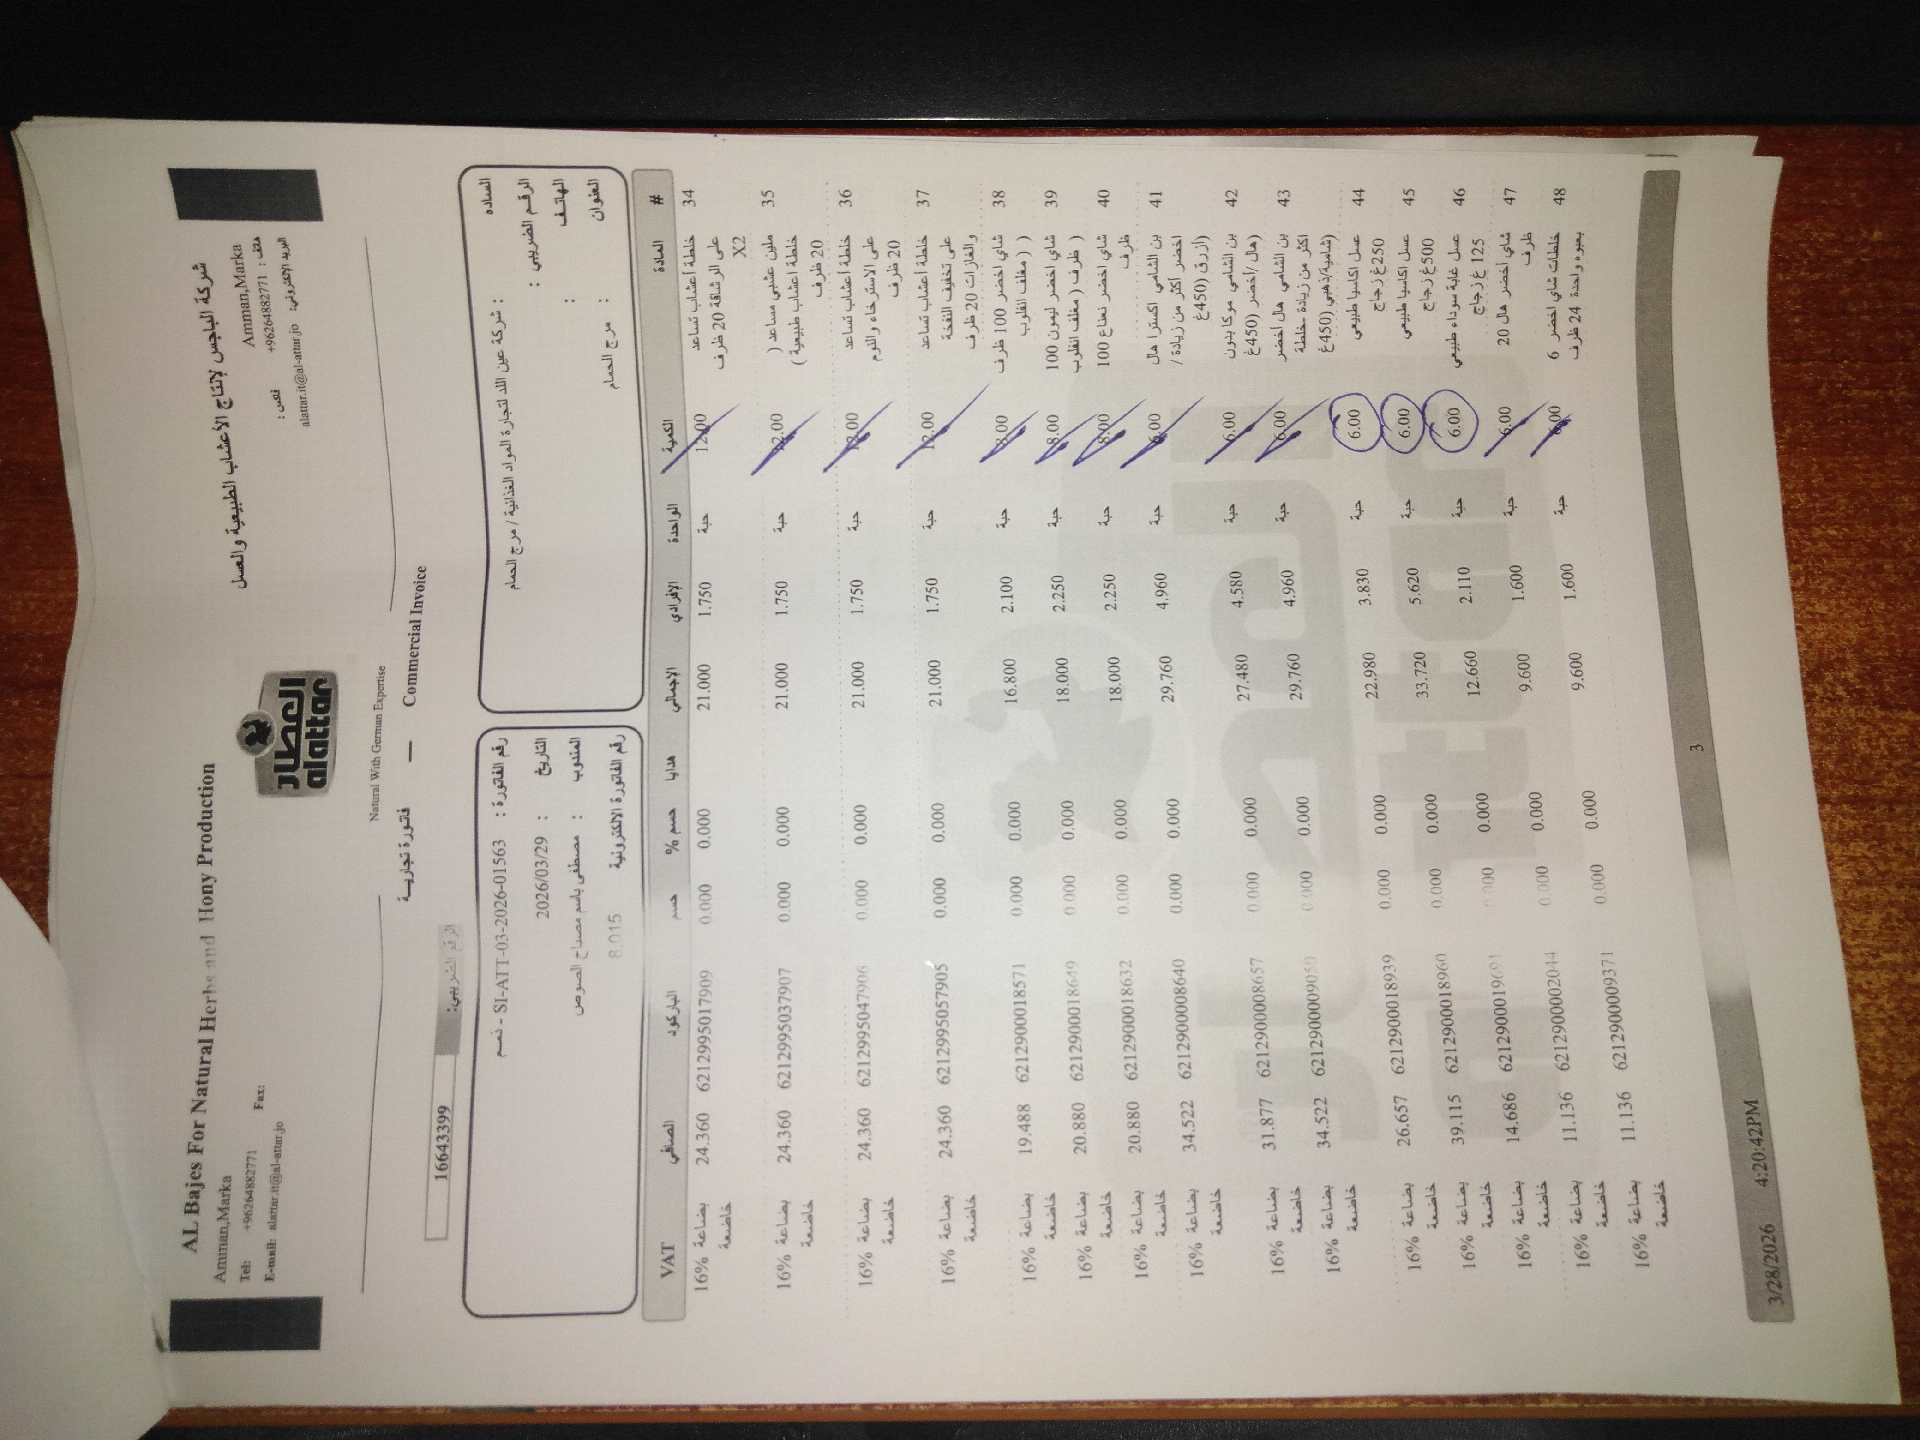 AL Bajes For Natural Herbs and Hony Production
Amman,Marka
Tel: +96264882771 Fax:
E-mail: alattar.it@al-attar.jo
العطار
alattar
Natural With German Expertise
شركة الباجس لإنتاج الأعشاب الطبيعية والعسل
Amman,Marka
هاتف : +96264882771 فاكس :
البريد الإلكتروني: alattar.it@al-attar.jo
فاتورة تجارية — Commercial Invoice
الرقم الضريبي: 16643399
الساده : شركة عين اللد لتجارة المواد الغذائية / مرج الحمام
الرقم الضريبي :
الهاتف :
العنوان : مرج الحمام
رقم الفاتورة : SI-ATT-03-2026-01563 - ذمم
التاريخ : 2026/03/29
المندوب : مصطفى باسم مصباح الصوص
رقم الفاتورة الالكترونية 8.015
# المادة الكمية الواحدة الإفرادي الإجمالي هدايا حسم % حسم الباركود الصافي VAT
34 خلطة أعشاب تساعد على الرشاقة 20 ظرف X2 12.00 حبة 1.750 21.000 0.000 0.000 6212995017909 24.360 16% بضاعة خاضعة
35 ملين عشبي مساعد ( خلطة اعشاب طبيعية ) 20 ظرف 12.00 حبة 1.750 21.000 0.000 0.000 6212995037907 24.360 16% بضاعة خاضعة
36 خلطة أعشاب تساعد على الاسترخاء والنوم 20 ظرف 12.00 حبة 1.750 21.000 0.000 0.000 6212995047906 24.360 16% بضاعة خاضعة
37 خلطة أعشاب تساعد على تخفيف النفخة والغازات 20 ظرف 12.00 حبة 1.750 21.000 0.000 0.000 6212995057905 24.360 16% بضاعة خاضعة
38 شاي اخضر 100 ظرف ( مغلف انفلوب ) 8.00 حبة 2.100 16.800 0.000 0.000 6212900018571 19.488 16% بضاعة خاضعة
39 شاي اخضر ليمون 100 ظرف ( مغلف انفلوب ) 8.00 حبة 2.250 18.000 0.000 0.000 6212900018649 20.880 16% بضاعة خاضعة
40 شاي اخضر نعناع 100 ظرف 8.00 حبة 2.250 18.000 0.000 0.000 6212900018632 20.880 16% بضاعة خاضعة
41 بن الشامي اكسترا هال اخضر أكثر من زيادة / (ازرق) 450غ 6.00 حبة 4.960 29.760 0.000 0.000 6212900008640 34.522 16% بضاعة خاضعة
42 بن الشامي موكا بدون هال /اخضر (450غ) 6.00 حبة 4.580 27.480 0.000 0.000 6212900008657 31.877 16% بضاعة خاضعة
43 بن الشامي هال اخضر اكثر من زيادة -خلطة شامية/ذهبي (450غ) 6.00 حبة 4.960 29.760 0.000 0.000 6212900009050 34.522 16% بضاعة خاضعة
44 عسل اكاسيا طبيعي 250غ زجاج 6.00 حبة 3.830 22.980 0.000 0.000 6212900018939 26.657 16% بضاعة خاضعة
45 عسل اكاسيا طبيعي 500غ زجاج 6.00 حبة 5.620 33.720 0.000 0.000 6212900018960 39.115 16% بضاعة خاضعة
46 عسل غابة سوداء طبيعي 125 غ زجاج 6.00 حبة 2.110 12.660 0.000 0.000 6212900019691 14.686 16% بضاعة خاضعة
47 شاي اخضر هال 20 ظرف 6.00 حبة 1.600 9.600 0.000 0.000 6212900002044 11.136 16% بضاعة خاضعة
48 خلطات شاي اخضر 6 بعبوه واحدة 24 ظرف 6.00 حبة 1.600 9.600 0.000 0.000 6212900009371 11.136 16% بضاعة خاضعة
3/28/2026 4:20:42PM 3